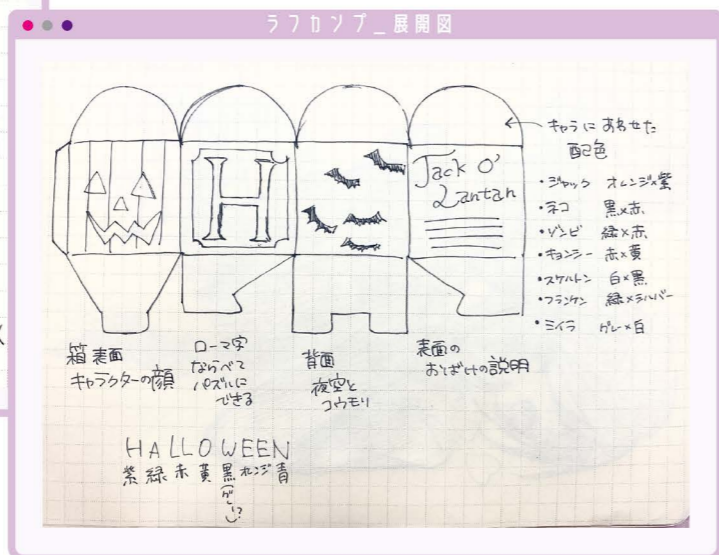 ラフカンプ_展開図
キャラにあわせた
配色
H
Jack O'
Lantan
・ジャック オレンジ×紫
・ネコ 黒×赤
・ゾンビ 緑×赤
・キョンシー 赤×黄
・スケルトン 白×黒
・フランケン 緑×シルバー
・ミイラ グレー×白
箱表面
キャラクターの顔
ローマ字
ならべて
パズルに
できる
背面
夜空と
コウモリ
表面の
おばけの説明
HALLOWEEN
紫緑赤黄黒オレンジ青
(グレー?)